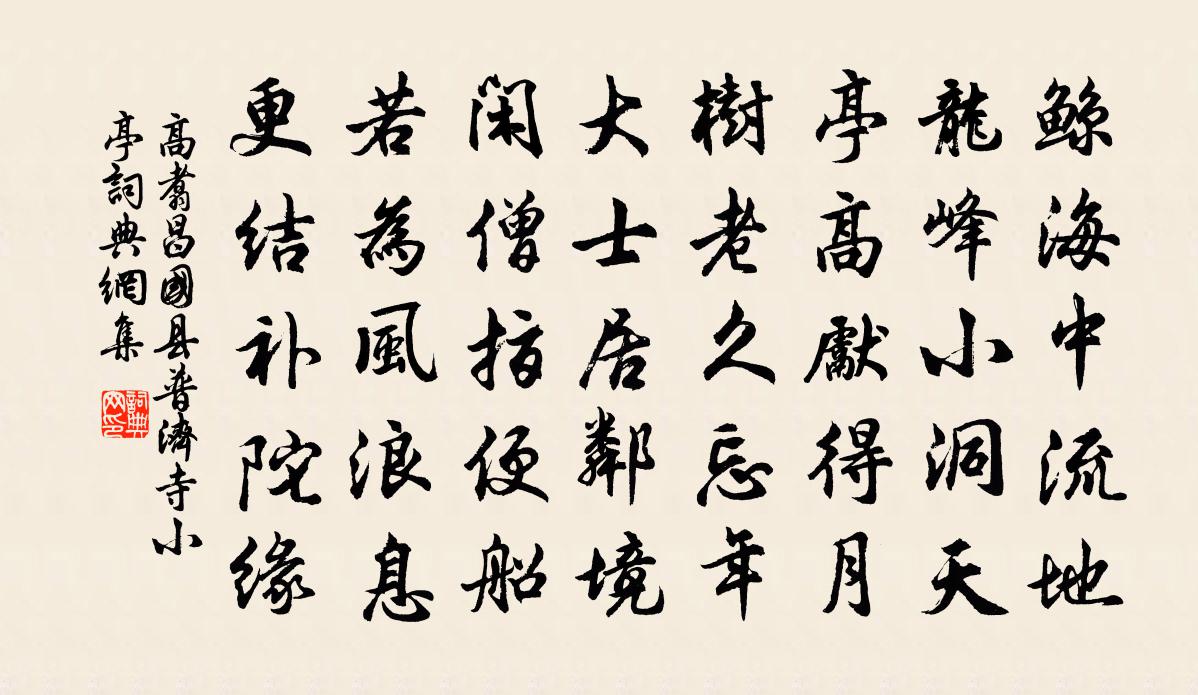 鲸海中流地
龍峰小洞天
亭高獻得月
樹老久忘年
大士居鄰境
闲僧指便船
若為風浪息
更结补陀缘
高翥昌國县普濟寺小
亭詞典網集
詞典
网印